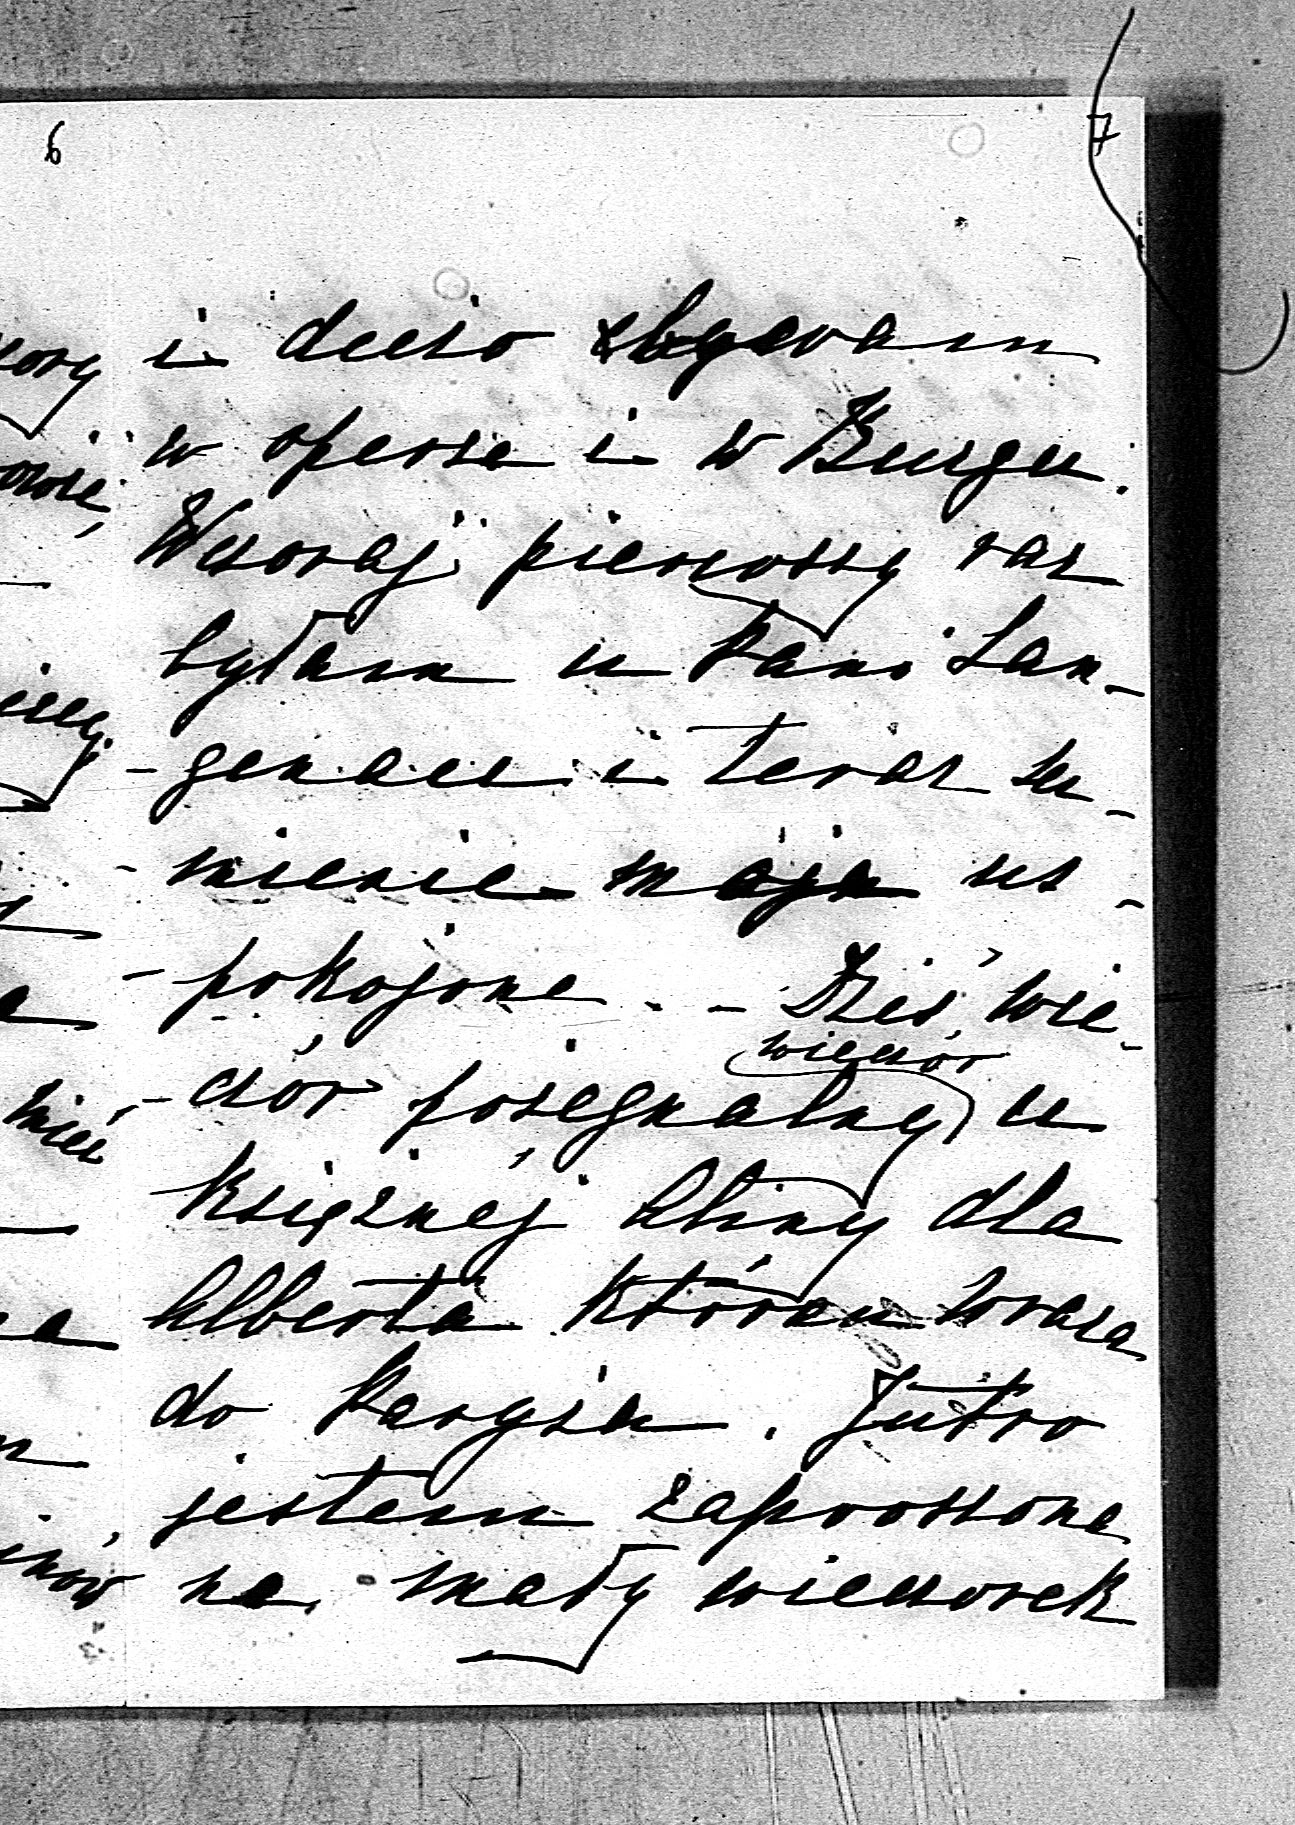 6
7
i dużo bywam
w operze i w Burgu.
Wczoraj pierwszy raz
byłam u Pani Lan-
-genau i teraz su-
-mienie moje us-
-pokojone. - Dziś wie-
wieczór
-czór pożegnalny u
księżnéj Aliny dla
Alberta który wraca
do Paryża. Jutro
jestem zaproszona
na mały wieczorek